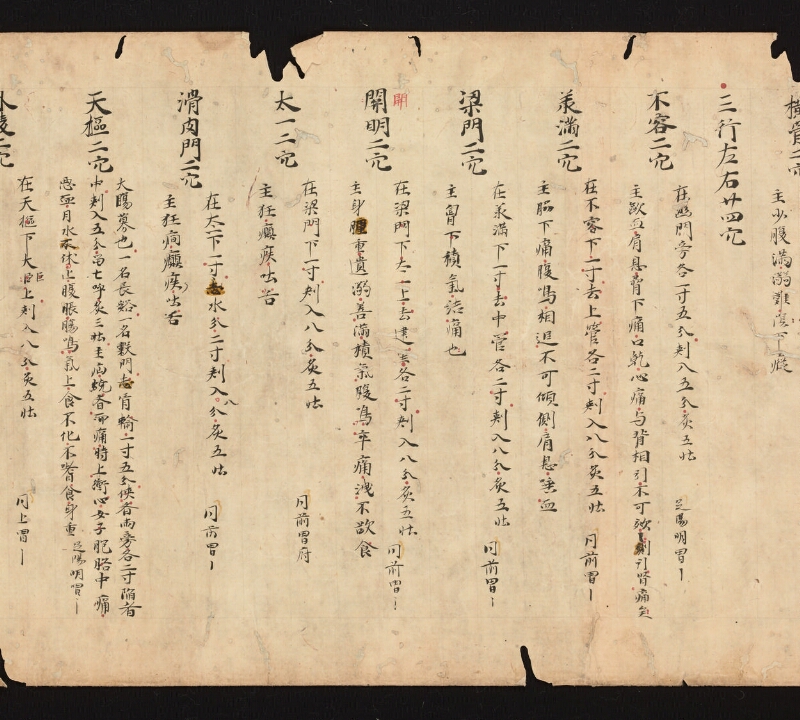 横骨二穴
主少腹満溺難
三行左右廿四穴
不容二穴
在 門旁各一寸五分刾入五分灸五壮 足陽明胃
主歐血肩息脅下痛口乾心痛与背相引不可欬 引腎痛
羕満二穴
在不容下一寸去上管各二寸刾入八分灸五壮 同前胃
主脇下痛腹鳴相追不可傾側肩息唾血
梁門二穴
在羕満下一寸去中管各二寸刾入八分灸五壮 同前胃
主胷下積氣結痛也
開
関明二穴
在梁門下太一上去 各二寸刾入八分灸五壮 同前胃
主身 重遺溺善満積氣腹鳴卒痛洩不欲食
太一二穴
在梁門下一寸刾入八分灸五壮 同前胃府
主狂癲疾吐舌
滑肉門二穴
在太一下一寸 水分二寸刾入八分灸五壮 同前胃
主狂癎癲疾吐舌
天樞二穴
大腸募也一名長谿一名穀門 肓輪一寸五分俠者両旁各二寸陥者
中刾入五分留七呼灸三壮主 繞者而痛時上衝心女子胞胳中痛
悪血月水 休止腹脹腸鳴氣上食不化不嗜食身重 足陽明胃
外陵二穴
在天樞下大巨上刾入八分灸五壮 同上胃